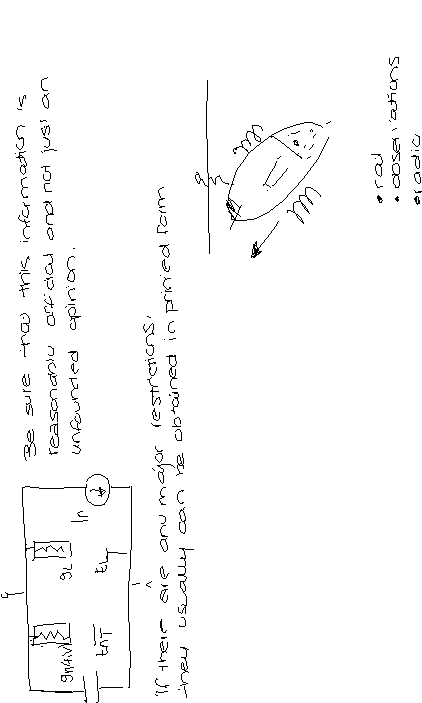 Be sure that this information is
reasonably official and not just an
unfounded opinion.
In
gL
If there are any major restrictions,
they usually can be obtained in printed form
• rad
• observations
• radio